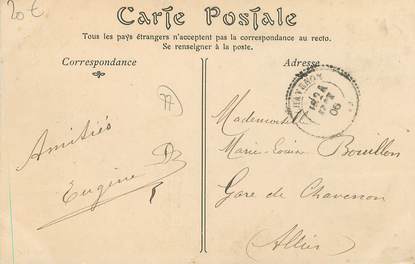 20€
Carte Postale
Tous les pays étrangers n'acceptent pas la correspondance au recto.
Se renseigner à la poste.
Correspondance
Adresse
77
Amitiés
Eugène
Mademoiselle
Marie-Louise Bouillon
Gare de Chavenon
(Allier)